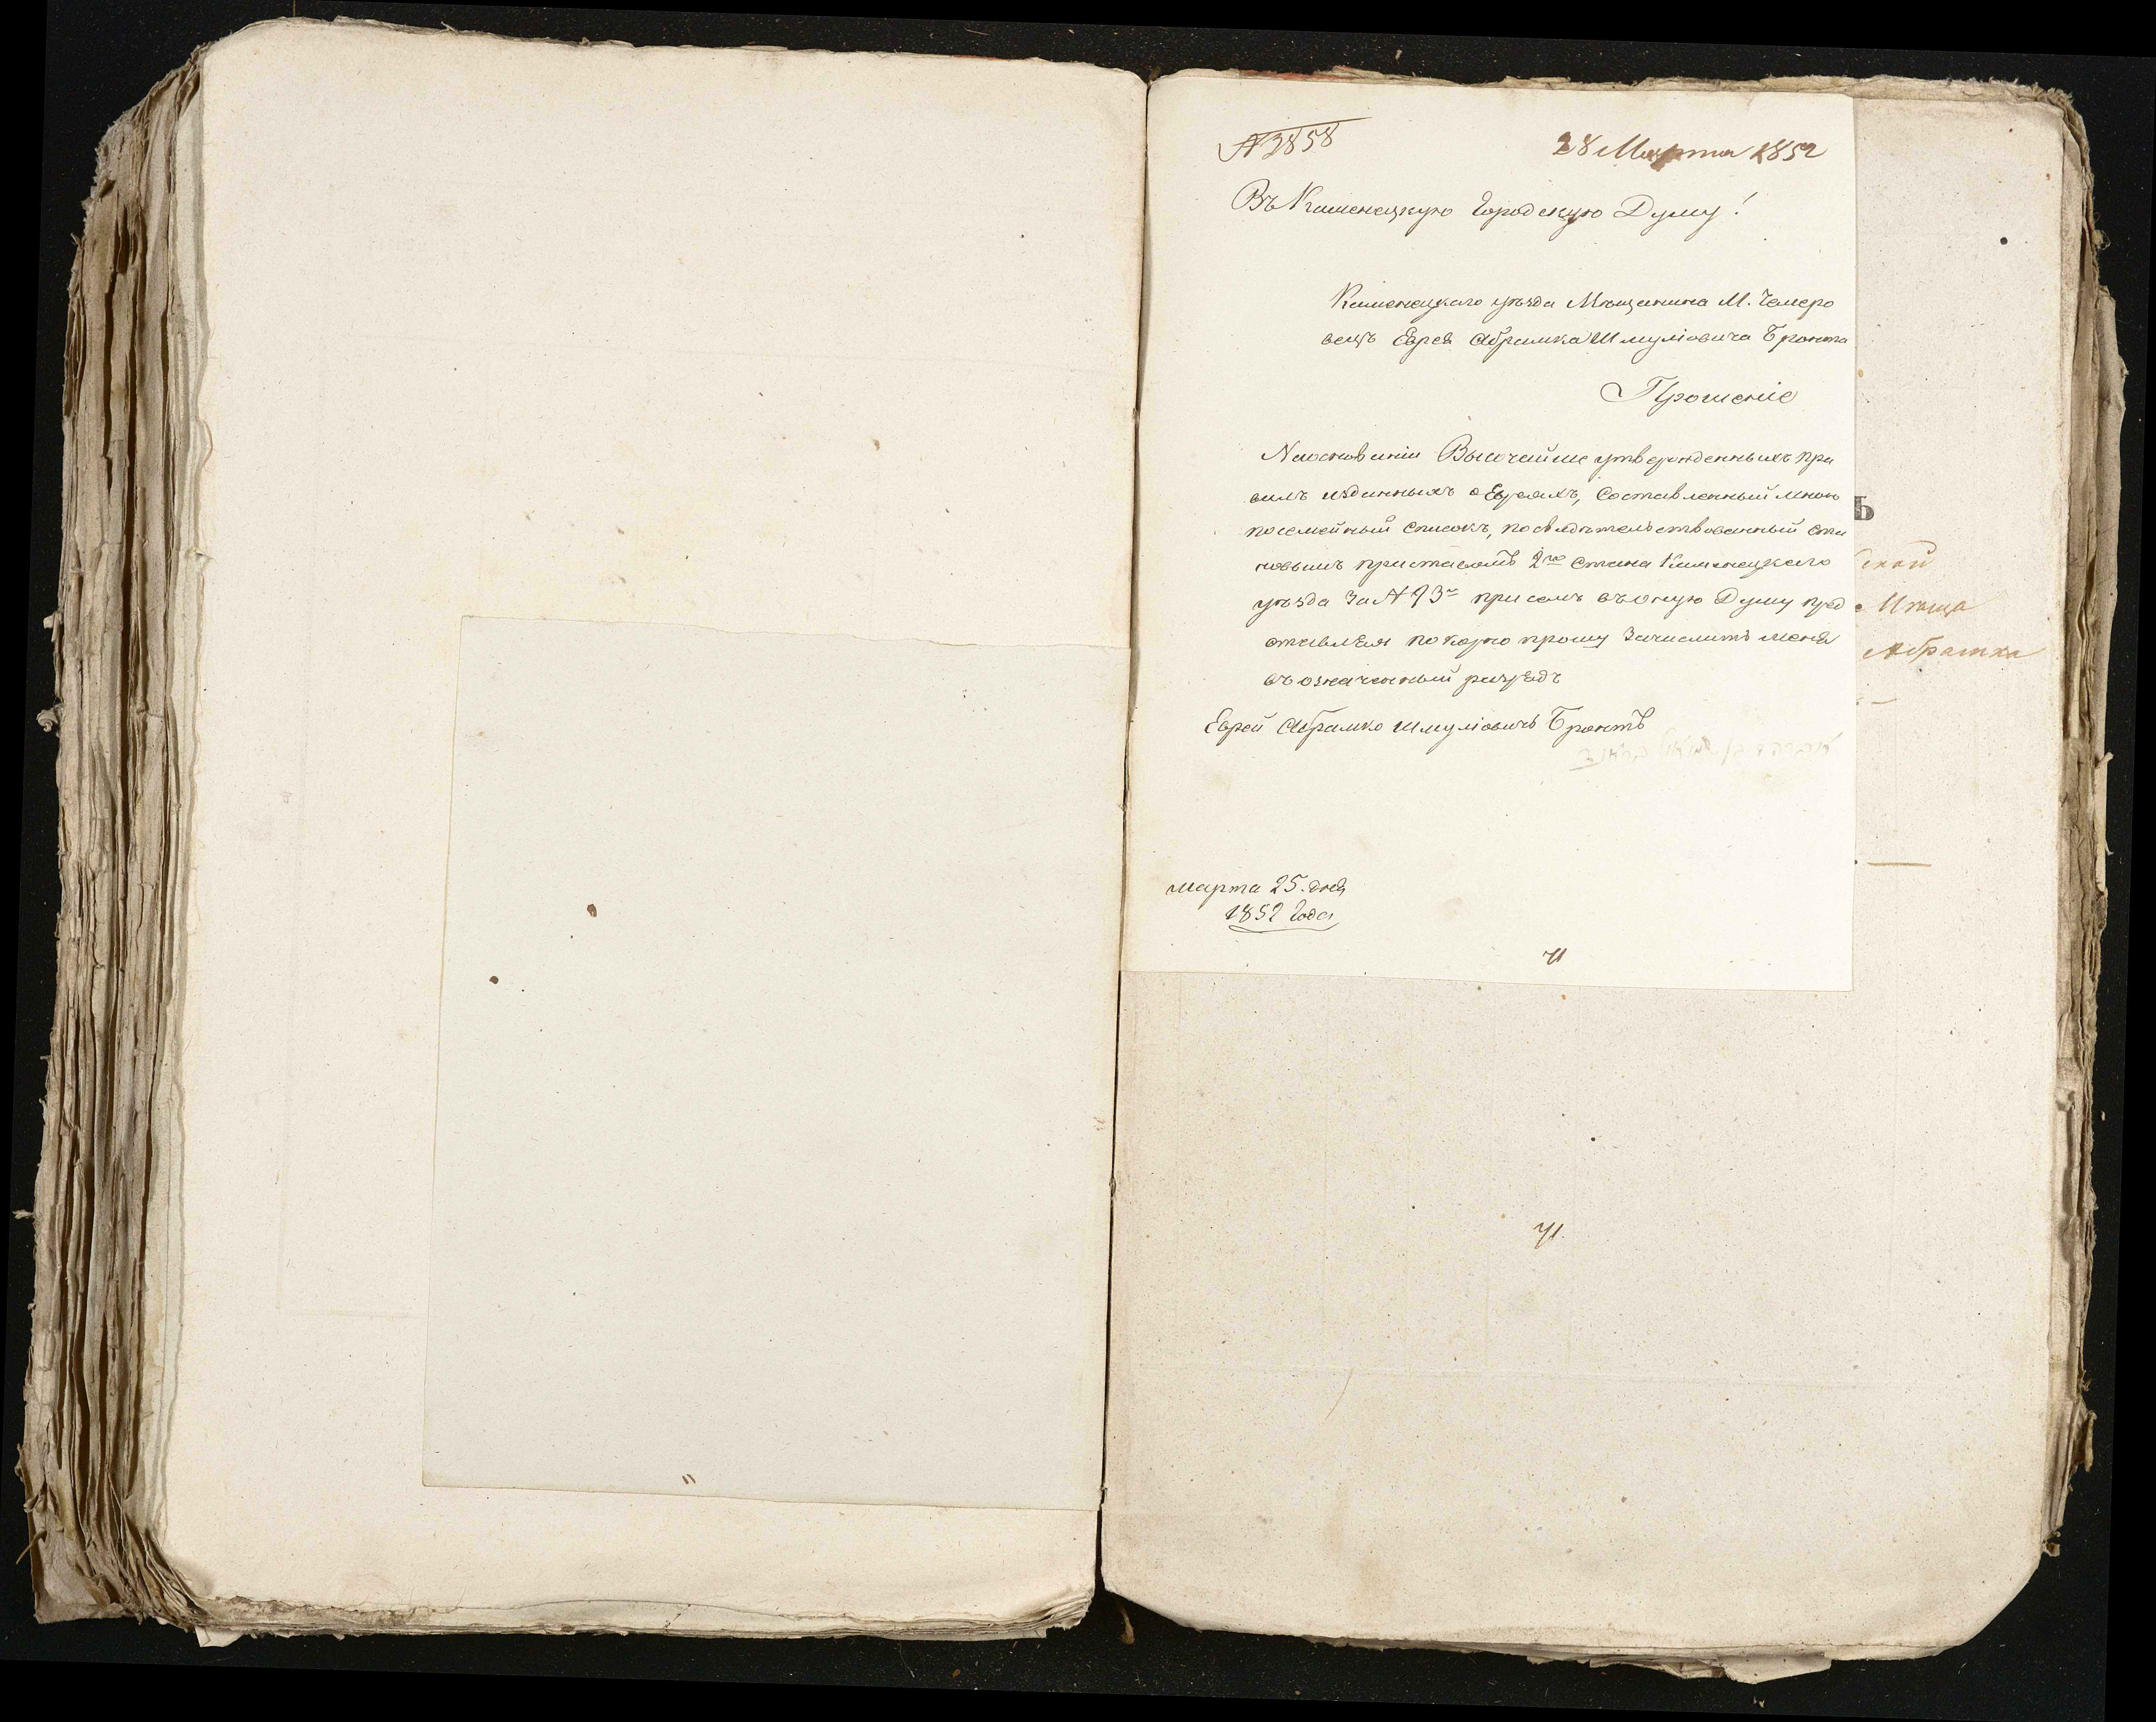 № 3858
28 Марта 1852
Въ Каменецкую Городскую Думу!
Каменецкаго уѣзда Мѣщанина М. Чемеро
вецъ Еврея Абрамка Шмуліовича Бронта
Прошеніе
На основаніи Высочайше утвержденныхъ пра
вилъ изданныхъ о Евреяхъ, составленный мною
посемейный списокъ, посвѣдѣтельствованный ста
новымъ приставомъ 2го стана Каменецкаго
уѣзда за № присемъ въ оную Думу пред
ставляя покорно прошу зачислить меня
въ означенный разрядъ
Еврей Абрамко Шмуліовичъ Бронтъ
марта 25. дня
1852 года
Ъ
ской
Мѣща
Абрамка